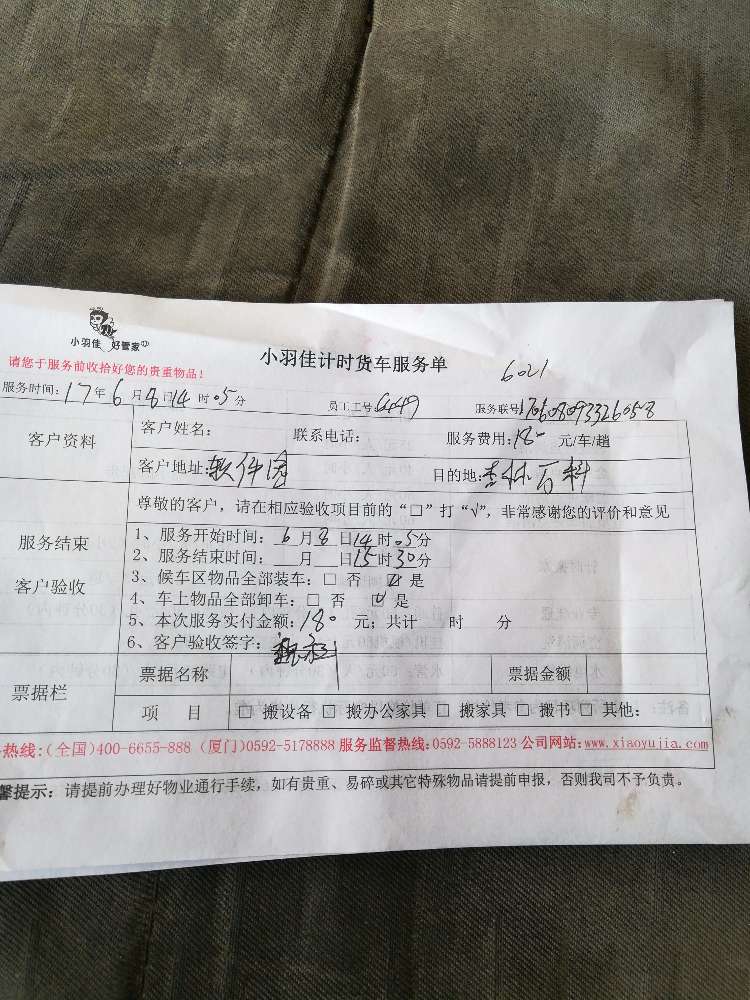 小羽佳 好管家
小羽佳计时货车服务单
6021
请您于服务前收拾好您的贵重物品！
服务时间：17年6月8日14时05分 员工工号：649 服务联号：
客户资料
客户姓名： 联系电话： 服务费用：180 元/车/趟
客户地址：软件园 目的地：杏林万科
尊敬的客户，请在相应验收项目前的“□”打“√”，非常感谢您的评价和意见
服务结束
客户验收
1、服务开始时间：6月8日14时05分
2、服务结束时间：__月__日15时30分
3、候车区物品全部装车：□ 否 ☑ 是
4、车上物品全部卸车：□ 否 ☑ 是
5、本次服务实付金额：180 元；共计 时 分
6、客户验收签字：
票据栏
票据名称 票据金额
项 目 □ 搬设备 □ 搬办公家具 □ 搬家具 □ 搬书 □ 其他：
热线：(全国)400-6655-888 (厦门)0592-5178888 服务监督热线：0592-5888123 公司网站：www.xiaoyujia.com
馨提示：请提前办理好物业通行手续，如有贵重、易碎或其它特殊物品请提前申报，否则我司不予负责。